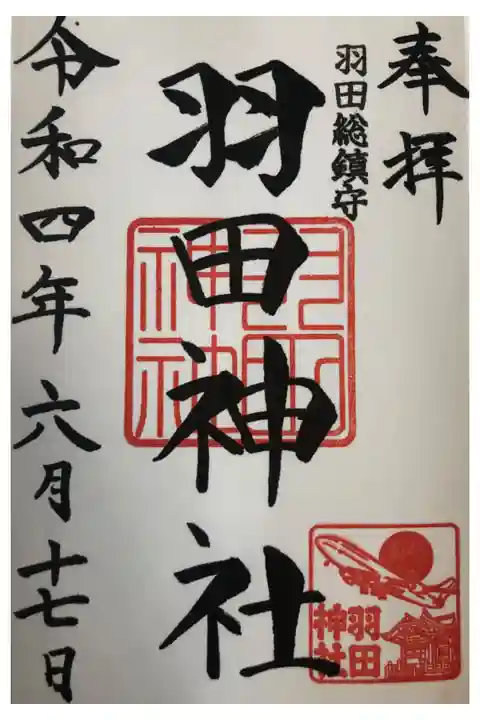 奉拝
羽田総鎮守
羽田神社
羽田
神社
羽田
神社
令和四年六月十七日